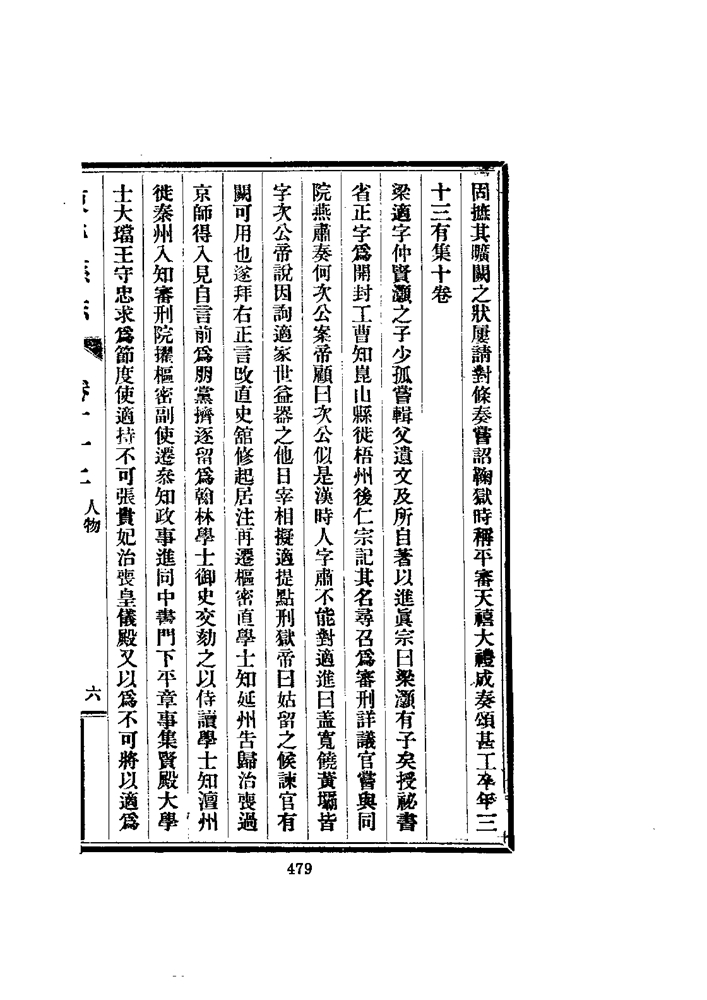 固摭其曠闕之狀屢請對條奏嘗詔鞠獄時稱平審天禧大禮成奏頌甚工卒年三
十三有集十卷
梁適字仲賢灝之子少孤嘗輯父遺文及所自著以進眞宗曰梁灝有子矣授祕書
省正字爲開封工曹知崑山縣徙梧州後仁宗記其名尋召爲審刑詳議官嘗與同
院燕肅奏何次公案帝顧曰次公似是漢時人字肅不能對適進曰盖寬饒黃霸皆
字次公帝說因詢適家世益器之他日宰相擬適提點刑獄帝曰姑留之候諫官有
闕可用也遂拜右正言改直史舘修起居注再遷樞密直學士知延州告歸治喪過
京師得入見自言前爲朋黨擠逐留爲翰林學士御史交劾之以侍讀學士知澶州
徙秦州入知審刑院擢樞密副使遷叅知政事進同中書門下平章事集賢殿大學
士大璫王守忠求爲節度使適持不可張貴妃治喪皇儀殿又以爲不可將以適爲
卷十二 人物 六
479